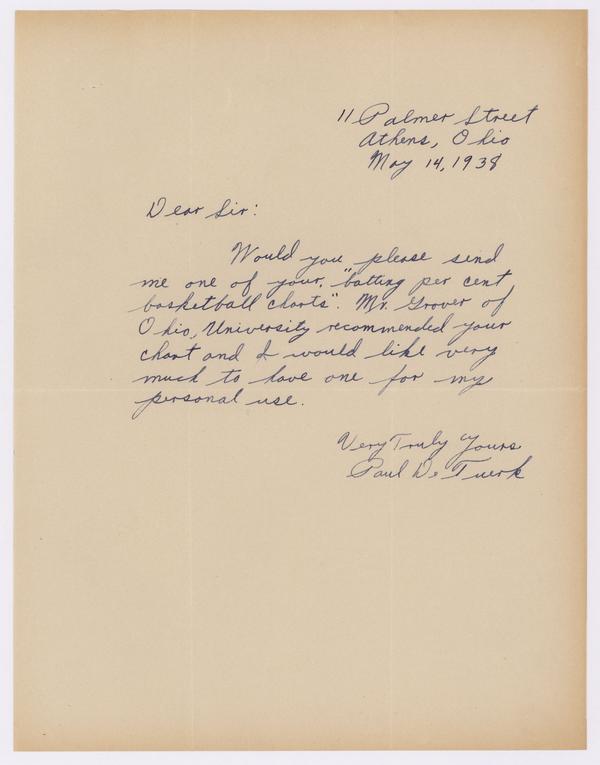 11 Palmer Street
Athens, Ohio
May 14, 1938
Dear Sir:
Would you please send
me one of your, "batting per cent
basketball charts". Mr. Grover of
Ohio, University recommended your
chart and I would like very
much to have one for my
personal use.
Very Truly Yours
Paul De Tuerk